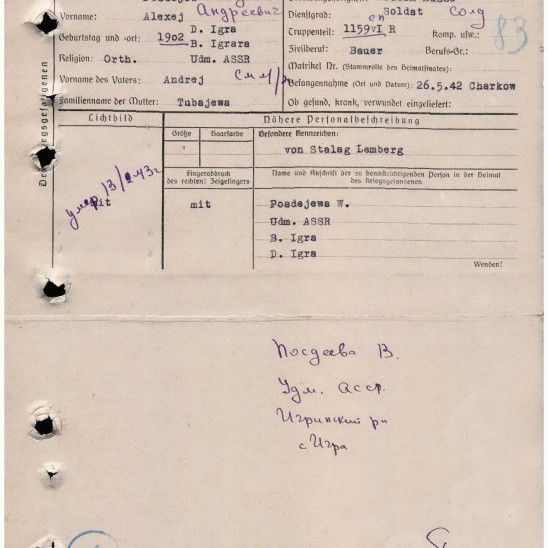 Vorname: Alexej Андреевич
Dienstgrad: Soldat солд
Geburtstag und -ort: 1902 D. Igra
B. Igrara
Truppenteil: 1159 VI R Komp. usw.: 83
Religion: Orth. Udm. ASSR
Zivilberuf: Bauer Berufs-Gr.:
Matrikel Nr. (Stammrolle des Heimatstaates):
Vorname des Vaters: Andrej
Gefangennahme (Ort und Datum): 26.5.42 Charkow
Familienname der Mutter: Tubajewa
Ob gesund, krank, verwundet eingeliefert:
Lichtbild
Nähere Personalbeschreibung
Größe Haarfarbe Besondere Kennzeichen:
von Stalag Lemberg
Fingerabdruck
des rechten! Zeigefingers
Name und Anschrift der zu benachrichtigenden Person in der Heimat
des Kriegsgefangenen
умер 13/2 43г
mit mit
Posdejewa W.
Udm. ASSR
B. Igra
D. Igra
Wenden!
Посдеева В.
Удм. АССР.
Игринский рн
с Игра